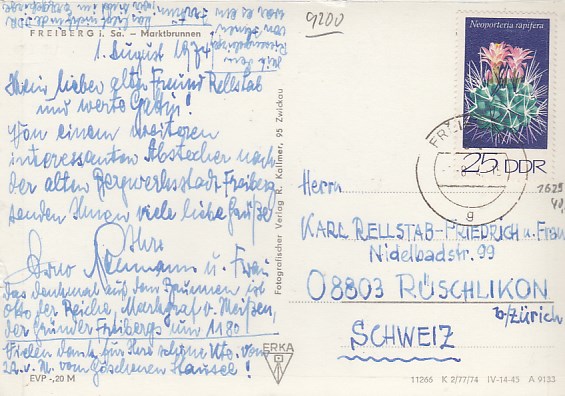 FREIBERG i. Sa. – Marktbrunnen
9200
Neoporteria rapifera
25 DDR
1. August 1974
Mein lieber alter Freund Rellstab
und werte Gattin!
Von einem weiteren
interessanten Abstecher nach
der alten Bergwerksstadt Freiberg
senden Ihnen viele liebe Grüße
Ihre
Neumann u. Frau
Das Denkmal auf dem Brunnen ist
Otto der Reiche, Markgraf v. Meißen,
der Gründer Freibergs um 1180
Vielen Dank für Ihre schöne Kto. vom
v. M. vom Göschenen
Fotografischer Verlag R. Kallmer, 95 Zwickau
Herrn
KARL RELLSTAB-FRIEDRICH u. Frau
Nidelbadstr. 99
08803 RÜSCHLIKON
b/Zürich
SCHWEIZ
g
ERKA
EVP -,20 M
11266 K 2/77/74 IV-14-45 A 9133